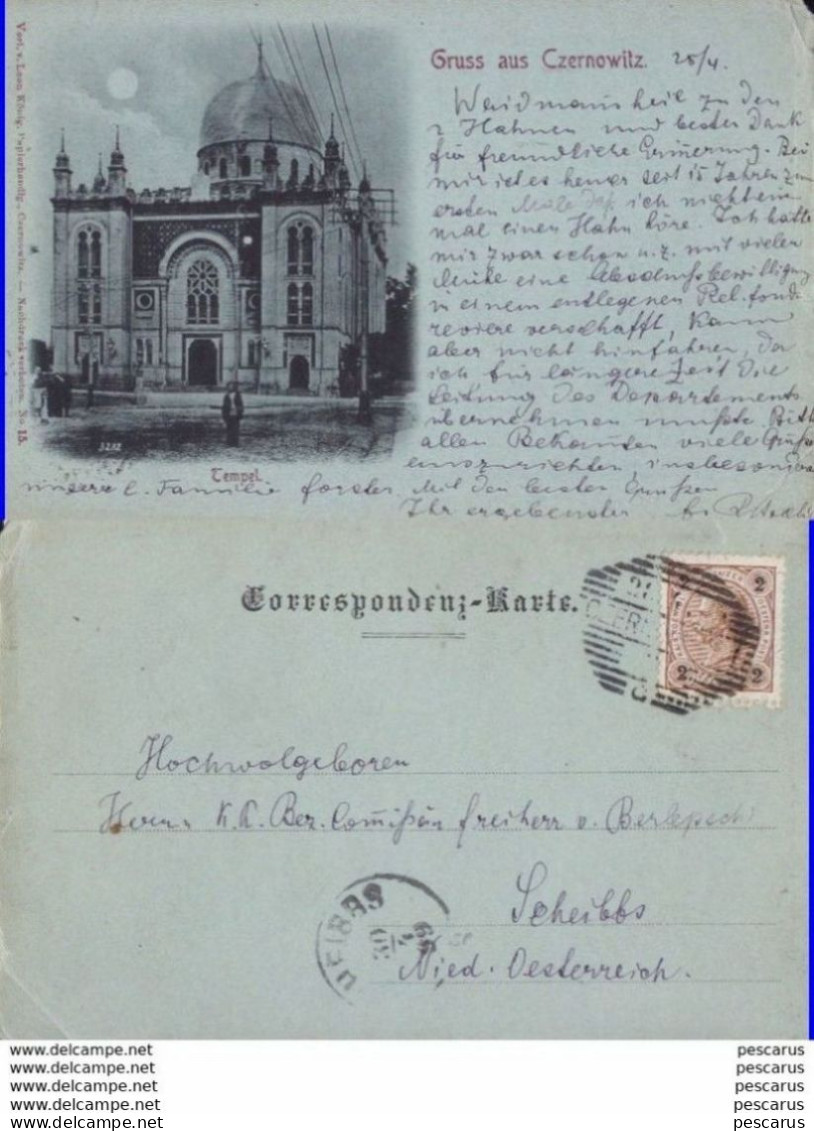 Verl. v. Leon König, Papierhandlg., Czernowitz. — Nachdruck verboten. No 15.
Gruss aus Czernowitz. 28/4.
Waidmannsheil zu den
2 Hahnen und bester Dank
für freundliche Erinnerung. Bei
mir ist es heuer seit 15 Jahren zum
ersten Male daß ich nicht ein
mal einen Hahn höre. Ich hatte
mir zwar schon u. z. mit vielen
Mühe eine Abschußbewilligung
in einem entlegenen Rel. fonds
reviere verschafft, kann
aber nicht hinfahren, da
ich für längere Zeit die
Leitung des Departements
übernehmen mußte. Bitte
allen Bekannten viele Grüße
auszurichten, insbesondere
3212
Tempel.
unsere l. Familie forster Mit den besten Grüßen
Ihr ergebenster
Correspondenz-Karte.
2 2
2 2
CZERN
Hochwolgeboren
Herrn K. K. Bez. Commißär freiherr v. Berlepsch
Scheibbs
Nied. Oesterreich.
EIBBS
www.delcampe.net pescarus
www.delcampe.net pescarus
www.delcampe.net pescarus
www.delcampe.net pescarus
www.delcampe.net pescarus